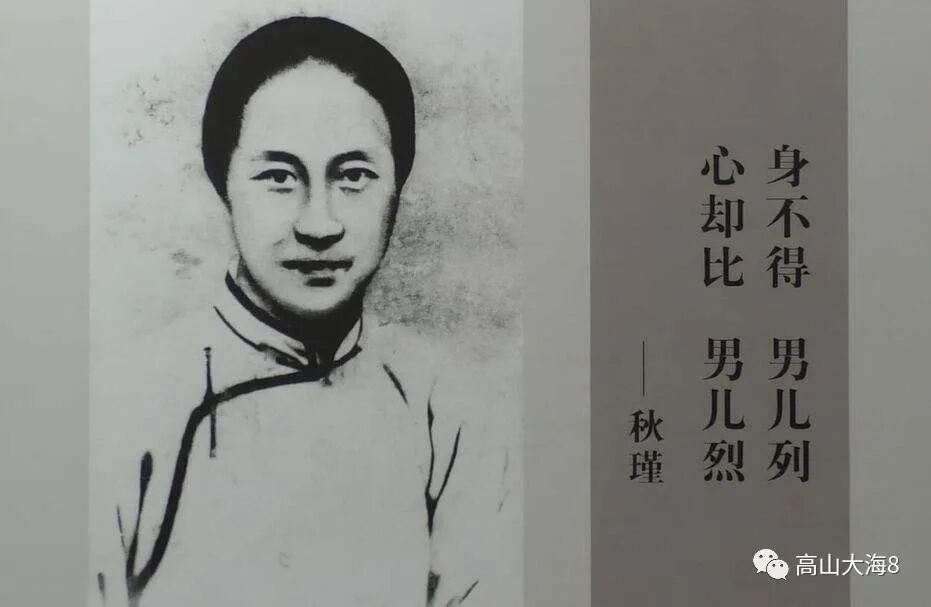 身不得 男儿列
心却比 男儿烈
——秋瑾
高山大海8